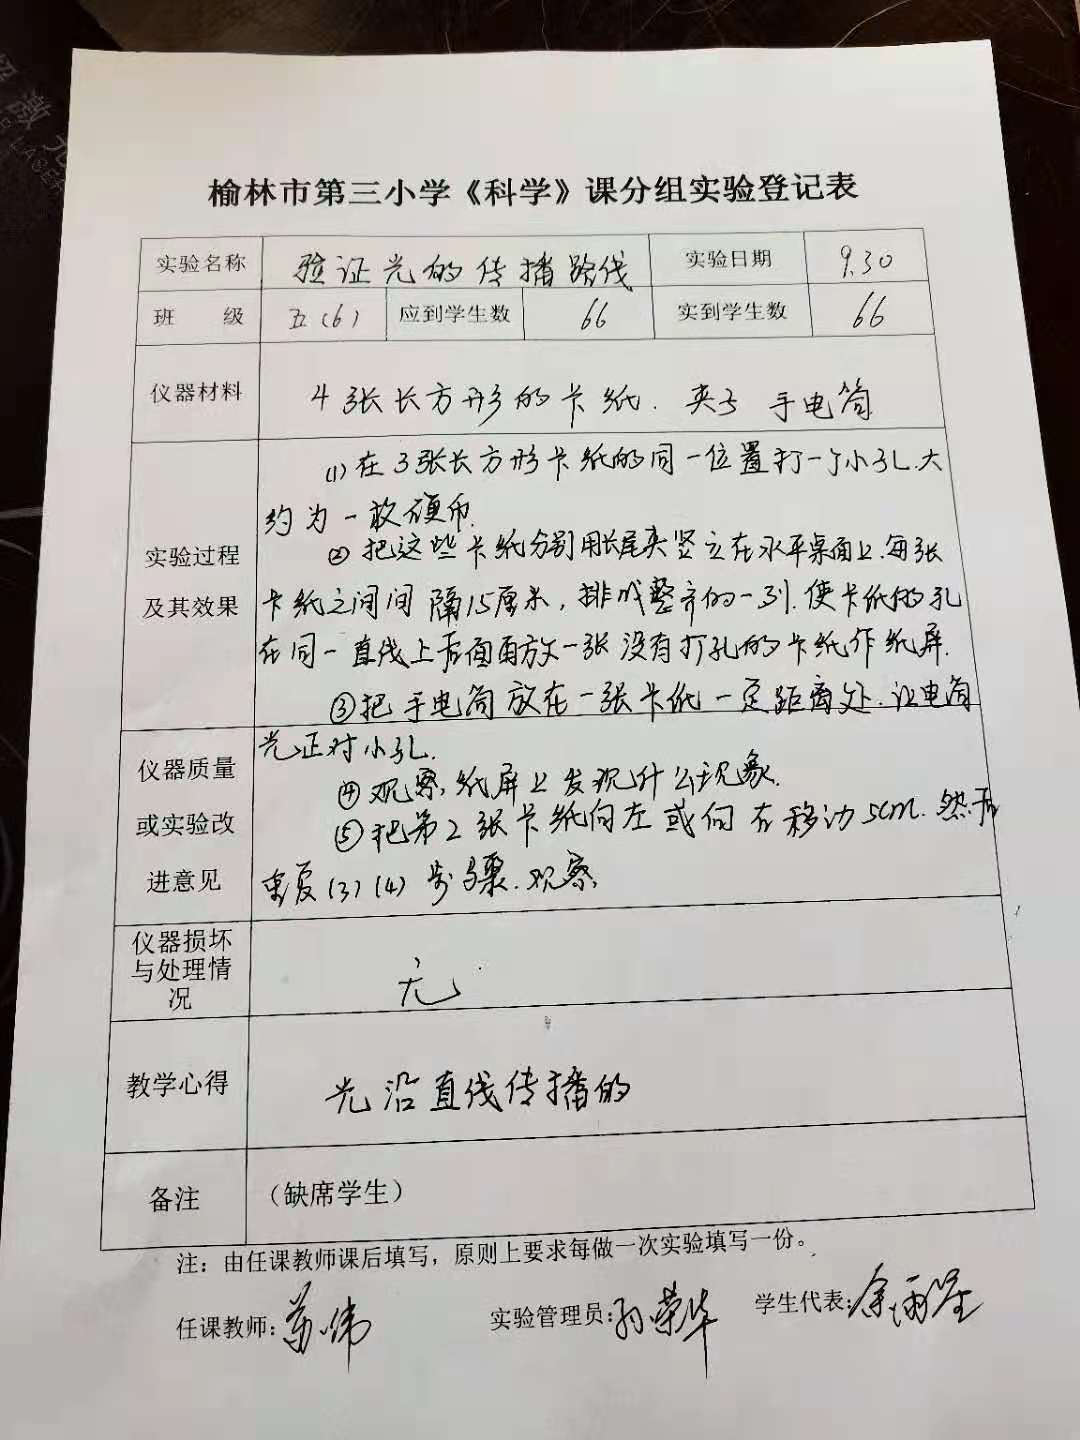 榆林市第三小学《科学》课分组实验登记表
实验名称 验证光的传播路线 实验日期 9.30
班 级 五(6) 应到学生数 66 实到学生数 66
仪器材料 4张长方形的卡纸. 夹子 手电筒
(1)在3张长方形卡纸的同一位置打一个小孔.大
约为一敉硬币.
实验过程
②把这些卡纸分别用长尾夹竖立在水平桌面上.每张
及其效果
卡纸之间间隔15厘米,排成整齐的一列.使卡纸的孔
在同一直线上后面再放一张没有打孔的卡纸作纸屏.
③把手电筒放在一张卡纸一定距离处.让电筒
光正对小孔.
仪器质量
④观察,纸屏上发现什么现象.
或实验改
⑤把第2张卡纸向左或向右移动5cm.然后
进意见
重复(3)(4)步骤.观察,
仪器损坏
与处理情
况
无
教学心得 光沿直线传播的
备注 (缺席学生)
注：由任课教师课后填写，原则上要求每做一次实验填写一份。
任课教师:苏伟 实验管理员:孙荣华 学生代表: